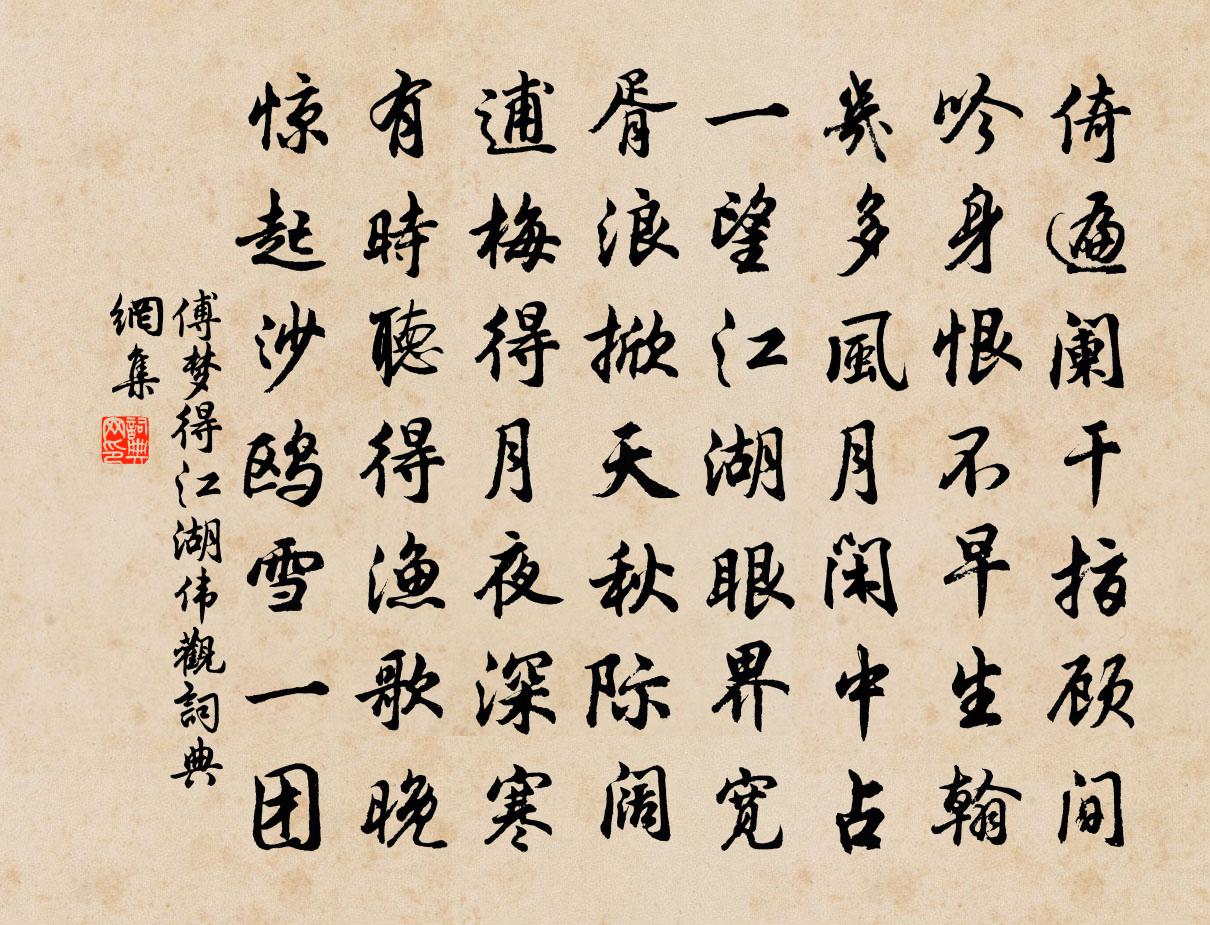 倚遍阑干指顾间
吟身恨不早生翰
幾多風月闲中占
一望江湖眼界宽
胥浪掀天秋际阔
逋梅得月夜深寒
有時聽得渔歌晚
惊起沙鸥雪一团
傅梦得江湖伟觀詞典
網集
詞典
网印